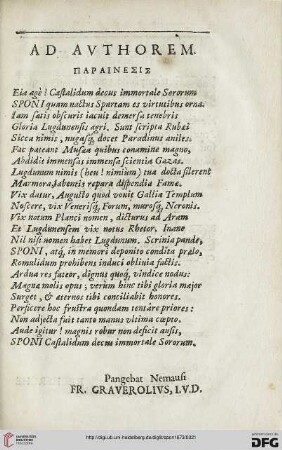 AD AVTHOREM.
ΠΑΡΑΙΝΕΣΙΣ
Eia agè! Castalidum decus immortale Sororum
SPONI quam nactus Spartam es virtutibus orna.
Iam satis obscuris iacuit demersa tenebris
Gloria Lugdunensis agri. Sunt scripta Rubei
Sicca nimis, nugasq, docet Paradinus aniles.
Fac pateant Musæa quibus conamine magno,
Abdidit immensas immensa scientia Gazas.
Lugdunum nimis (heu! nimium) tua docta silerent
Marmora, labentis repara dispendia Famæ.
Vix datur, Augusto quod vouit Gallia Templum
Noscere, vix Venerisq, Forum, murosq, Neronis.
Vix notum Planci nomen, dicturus ad Aram
Et Lugdunensem vix notus Rhetor. Inane
Nil nisi nomen habet Lugdunum. Scrinia pande,
SPONI, atq, in memori deponito condita prælo,
Romulidum prohibens induci obliuia factis.
Ardua res fateor, dignus quoq, vindice nodus:
Magna molis opus; verùm hinc tibi gloria maior
Surget, & æternos tibi conciliabit honores.
Perficere hoc frustra quondam tentâre priores:
Non adjecta fuit tanto manus vltima cœpto.
Aude igitur! magnis robur non deficit ausis,
SPONI Castalidum decus immortale Sororum.
Pangebat Nemausi
FR. GRAVEROLIVS, I.V.D.
© Universitätsbibliothek Heidelberg
DFG